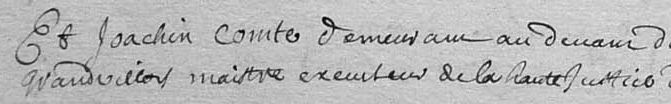 Et Joachin Comte demeurant au devant d
grandvillers maistre executeur de la haute Justice